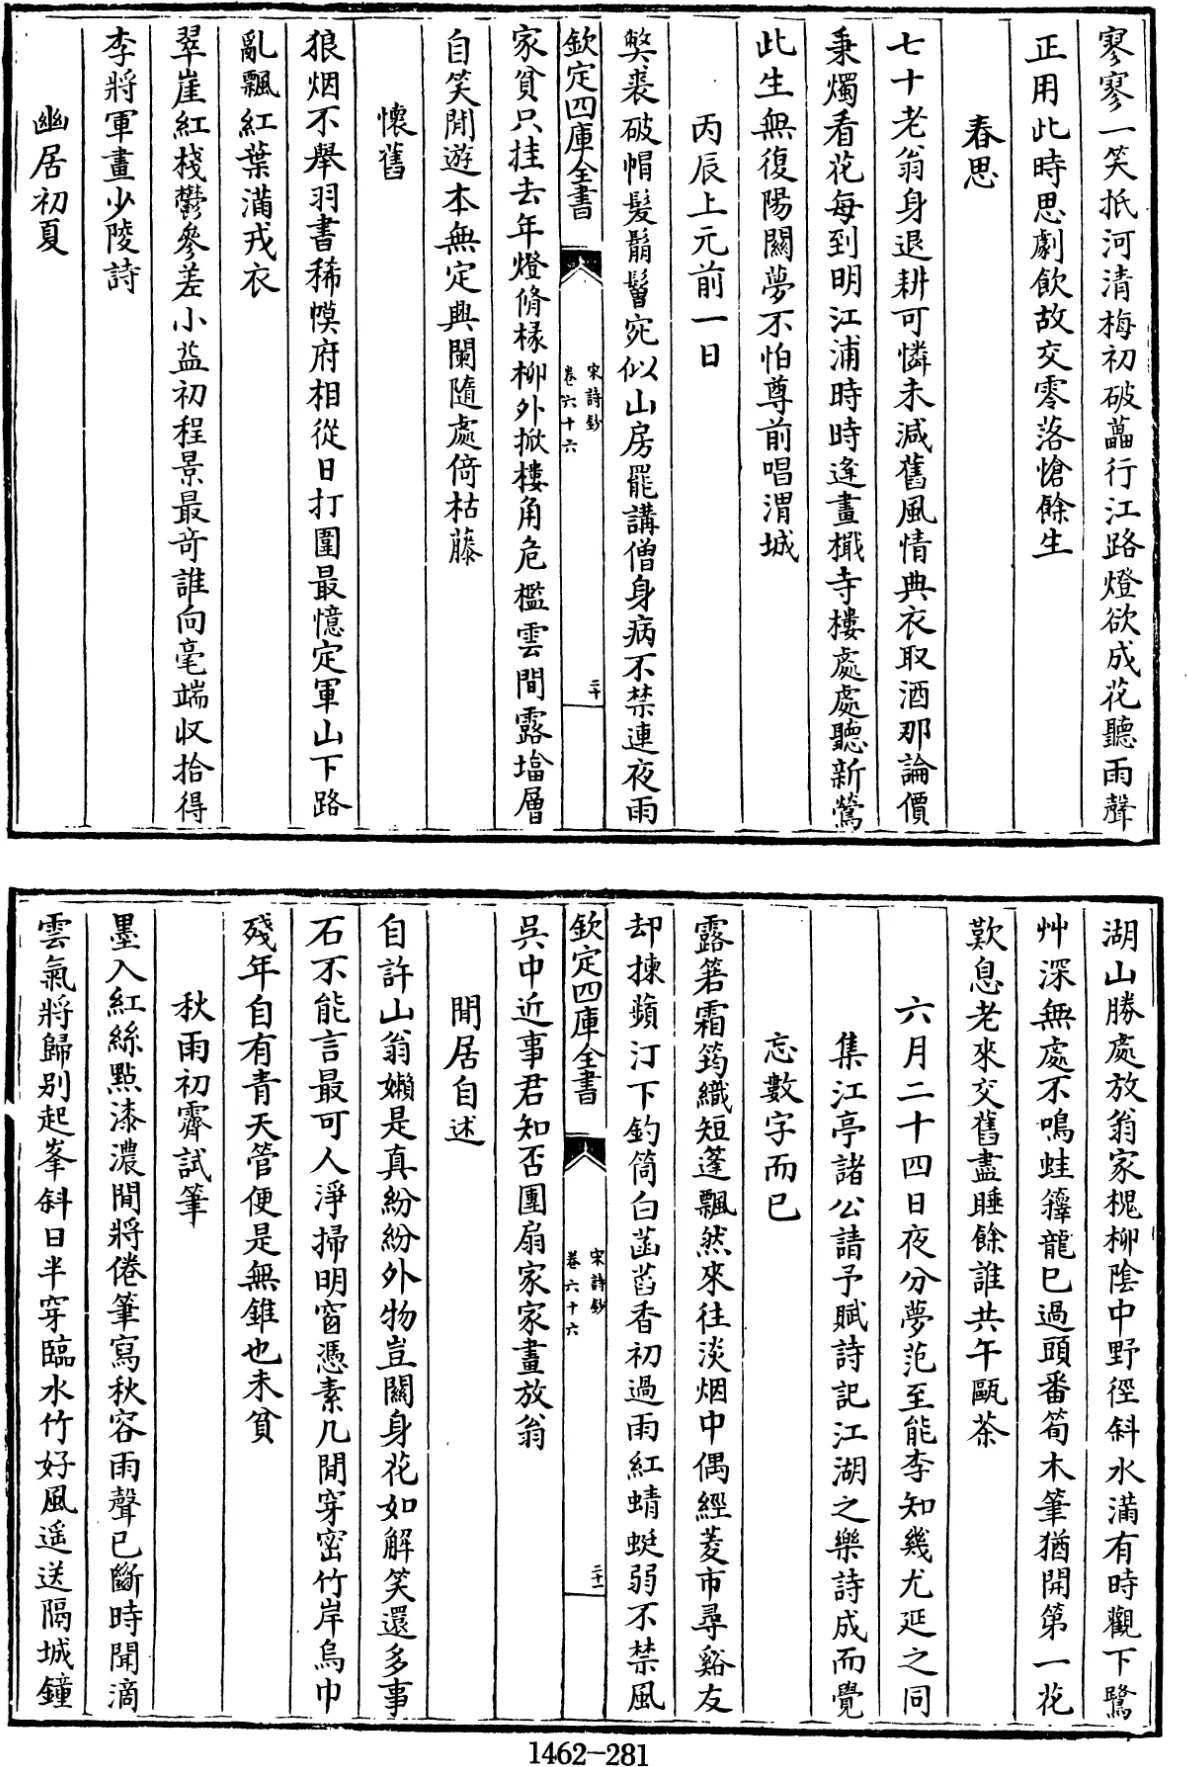 寥寥一笑抵河清梅初破蘂行江路燈欲成花聽雨聲
正用此時思劇飲故交零落愴餘生
春思
七十老翁身退耕可憐未減舊風情典衣取酒那論價
秉燭看花每到明江浦時時逢畫檝寺樓處處聽新鶯
此生無復陽關夢不怕尊前唱渭城
丙辰上元前一日
弊裘破帽髮鬅鬙宛似山房罷講僧身病不禁連夜雨
欽定四庫全書
宋詩鈔
卷六十六
三十
家貧只挂去年燈脩椽柳外掀樓角危檻雲間露塔層
自笑閒遊本無定興闌隨處倚枯藤
懷舊
狼烟不舉羽書稀幙府相從日打圍最憶定軍山下路
亂飄紅葉滿戎衣
翠崖紅棧鬱參差小益初程景最奇誰向毫端收拾得
李將軍畫少陵詩
幽居初夏
湖山勝處放翁家槐柳陰中野徑斜水滿有時觀下鷺
艸深無處不鳴蛙籜龍已過頭番筍木筆猶開第一花
歎息老來交舊盡睡餘誰共午甌茶
六月二十四日夜分夢范至能李知幾尤延之同
集江亭諸公請予賦詩記江湖之樂詩成而覺
忘數字而已
露箬霜筠織短蓬飄然來往淡烟中偶經菱市尋谿友
却揀蘋汀下釣筒白菡萏香初過雨紅蜻蜓弱不禁風
欽定四庫全書
宋詩鈔
卷六十六
三十一
吳中近事君知否團扇家家畫放翁
閒居自述
自許山翁嬾是真紛紛外物豈關身花如解笑還多事
石不能言最可人淨掃明窗憑素几閒穿密竹岸烏巾
殘年自有青天管便是無錐也未貧
秋雨初霽試筆
墨入紅絲點漆濃閒將倦筆寫秋容雨聲已斷時聞滴
雲氣將歸別起峯斜日半穿臨水竹好風遥送隔城鐘
1462-281